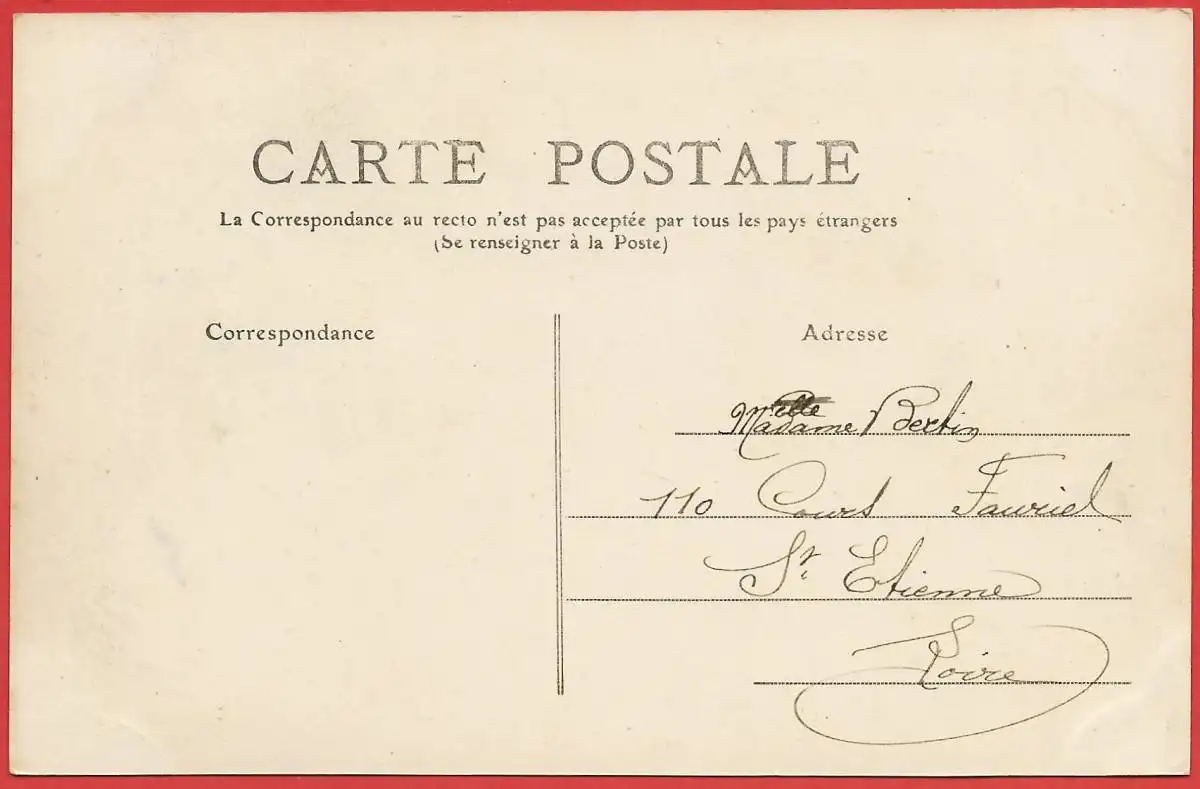 CARTE POSTALE
La Correspondance au recto n'est pas acceptée par tous les pays étrangers
(Se renseigner à la Poste)
Correspondance
Adresse
Madame Bertin
110 Cours Fauriel
St. Etienne
Loire